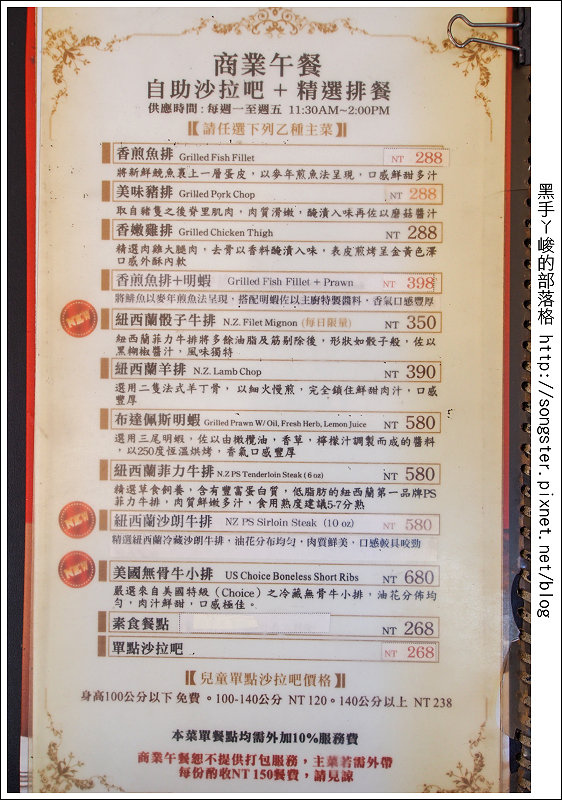 商業午餐
自助沙拉吧 + 精選排餐
供應時間:每週一至週五 11:30AM~2:00PM
【請任選下列乙種主菜】
香煎魚排 Grilled Fish Fillet NT 288
將新鮮鯢魚裹上一層蛋皮,以麥年煎魚法呈現,口感鮮甜多汁
美味豬排 Grilled Pork Chop NT 288
取自豬隻之後脊里肌肉,肉質滑嫩,醃漬入味再佐以蘑菇醬汁
香嫩雞排 Grilled Chicken Thigh NT 288
精選肉雞大腿肉,去骨以香料醃漬入味,表皮煎烤呈金黃色澤
口感外酥內軟
香煎魚排+明蝦 Grilled Fish Fillet + Prawn NT 398
將鯡魚以麥年煎魚法呈現,搭配明蝦佐以主廚特製醬料,香氣口感豐厚
NEW
紐西蘭骰子牛排 N.Z. Filet Mignon (每日限量) NT 350
紐西蘭菲力牛排將多餘油脂及筋剔除後,形狀如骰子般,佐以
黑糊椒醬汁,風味獨特
紐西蘭羊排 N.Z. Lamb Chop NT 390
選用二隻法式羊丁骨,以細火慢煎,完全鎖住鮮甜肉汁,口感
豐厚
布達佩斯明蝦 Grilled Prawn W/ Oil, Fresh Herb, Lemon Juice NT 580
選用三尾明蝦,佐以由橄欖油,香草,檸檬汁調製而成的醬料
,以250度恆溫烘烤,香氣口感豐厚
紐西蘭菲力牛排 N.Z PS Tenderloin Steak (6 oz) NT 580
精選草食飼養,含有豐富蛋白質,低脂肪的紐西蘭第一品牌PS
菲力牛排,肉質鮮嫩多汁,食用熟度建議5-7分熟
NEW
紐西蘭沙朗牛排 NZ PS Sirloin Steak (10 oz) NT 580
精選紐西蘭冷藏沙朗牛排,油花分布均勻,肉質鮮美,口感較具咬勁
NEW
美國無骨牛小排 US Choice Boneless Short Ribs NT 680
嚴選來自美國特級(Choice)之冷藏無骨牛小排,油花分佈均
勻,肉汁鮮甜,口感極佳。
素食餐點 NT 268
單點沙拉吧 NT 268
【兒童單點沙拉吧價格】
身高100公分以下 免費。100-140公分 NT 120。140公分以上 NT 238
本菜單餐點均需外加10%服務費
商業午餐恕不提供打包服務,主菜若需外帶
每份酌收NT 150餐費,請見諒
黑手ㄚ峻的部落格 http://songster.pixnet.net/blog